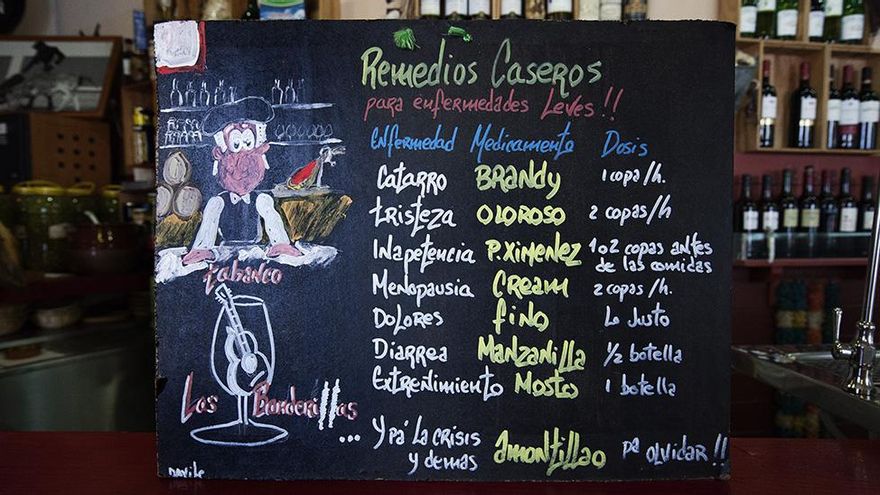 Remedios Caseros
para enfermedades Leves!!
Enfermedad Medicamento Dosis
Catarro BRANDY 1 copa/h.
tristeza OLOROSO 2 copas/h
Inapetencia P.XIMENEZ 1 o 2 copas antes
de las comidas
Menopausia Cream 2 copas/h.
Dolores fino Lo Justo
Diarrea Manzanilla 1/2 botella
Extreñimiento Mosto 1 botella
Y pa' la crisis Amontillao pa olvidar!!
y demas
tabanco
Las Banderillas
...